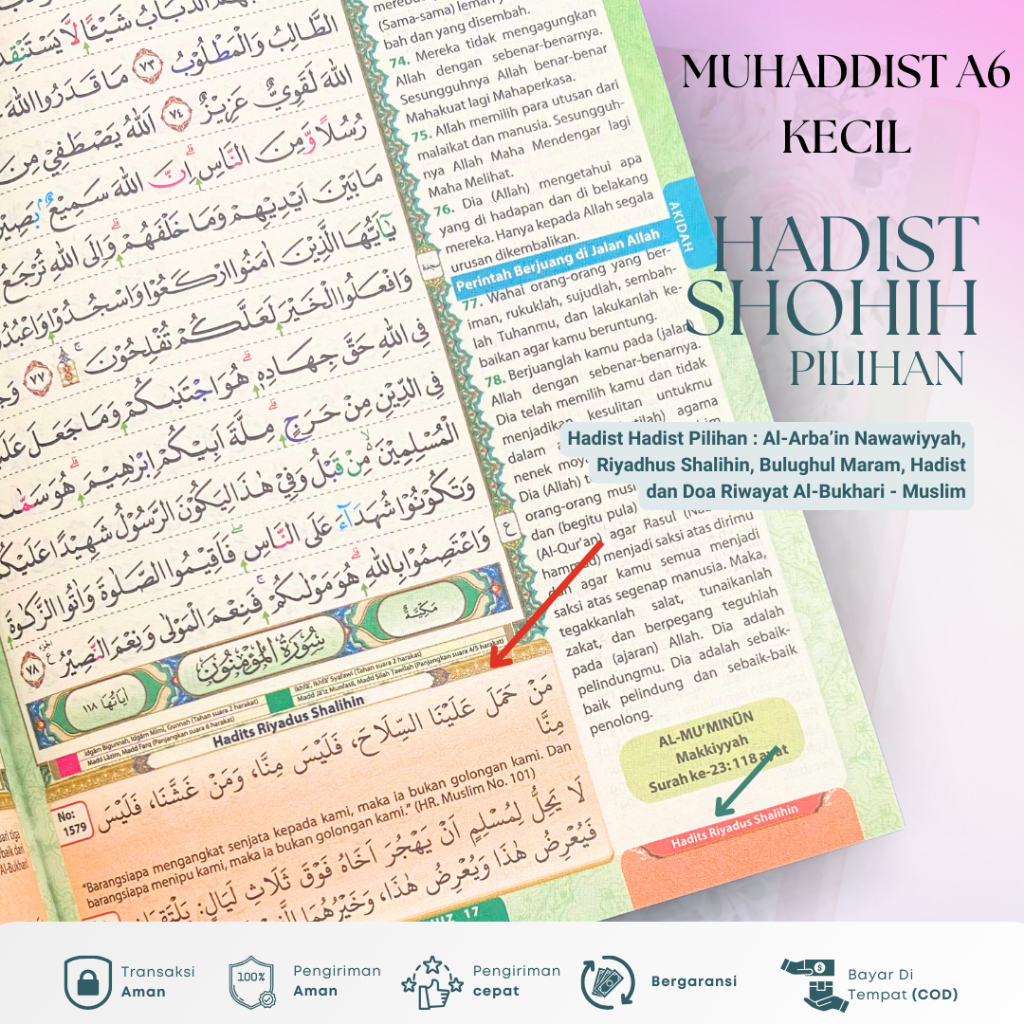 MUHADDIST A6
KECIL
HADIST
SHOHIH
PILIHAN
Hadist Hadist Pilihan : Al-Arba’in Nawawiyyah,
Riyadhus Shalihin, Bulughul Maram, Hadist
dan Doa Riwayat Al-Bukhari - Muslim
الطَّالِبُ وَالْمَطْلُوْبُ ٧٣ مَا قَدَرُوا اللّٰهَ
اللّٰهَ لَقَوِيٌّ عَزِيْزٌ ٧٤ اَللّٰهُ يَصْطَفِيْ مِنَ
رُسُلًا وَّمِنَ النَّاسِۗ اِنَّ اللّٰهَ سَمِيْعٌۢ بَصِيْرٌ
مَا بَيْنَ اَيْدِيْهِمْ وَمَا خَلْفَهُمْۗ وَاِلَى اللّٰهِ تُرْجَعُ
يٰٓاَيُّهَا الَّذِيْنَ اٰمَنُوا ارْكَعُوْا وَاسْجُدُوْا وَاعْبُدُوْا
وَافْعَلُوا الْخَيْرَ لَعَلَّكُمْ تُفْلِحُوْنَۚ ٧٧
فِى اللّٰهِ حَقَّ جِهَادِهٖۗ هُوَ اجْتَبٰىكُمْ وَمَا جَعَلَ
فِى الدِّيْنِ مِنْ حَرَجٍۗ مِلَّةَ اَبِيْكُمْ اِبْرٰهِيْمَۗ هُوَ
الْمُسْلِمِيْنَ مِنْ قَبْلُ وَفِيْ هٰذَا لِيَكُوْنَ الرَّسُوْلُ شَهِيْدًا
وَتَكُوْنُوْا شُهَدَاۤءَ عَلَى النَّاسِۖ فَاَقِيْمُوا الصَّلٰوةَ وَاٰتُوا الزَّكٰوةَ
وَاعْتَصِمُوْا بِاللّٰهِ هُوَ مَوْلٰىكُمْۚ فَنِعْمَ الْمَوْلٰى وَنِعْمَ النَّصِيْرُ ٧٨
مَكِّيَّةٌ
سُوْرَةُ الْمُؤْمِنُوْنَ
اٰيَاتُهَا ١١٨
(Sama-sama) lemah
bah dan yang disembah.
74. Mereka tidak mengagungkan
Allah dengan sebenar-benarnya.
Sesungguhnya Allah benar-benar
Mahakuat lagi Mahaperkasa.
75. Allah memilih para utusan dari
malaikat dan manusia. Sesungguh-
nya Allah Maha Mendengar lagi
Maha Melihat.
76. Dia (Allah) mengetahui apa
yang di hadapan dan di belakang
mereka. Hanya kepada Allah segala
urusan dikembalikan.
Perintah Berjuang di Jalan Allah
AKIDAH
77. Wahai orang-orang yang ber-
iman, rukuklah, sujudlah, sembah-
lah Tuhanmu, dan lakukanlah ke-
baikan agar kamu beruntung.
78. Berjuanglah kamu pada (jalan)
Allah dengan sebenar-benarnya.
Dia telah memilih kamu dan tidak
menjadikan kesulitan untukmu
dalam agama
nenek
Dia (Allah)
orang-orang
dan (begitu pula)
(Al-Qur'an) agar Rasul
menjadi saksi atas dirimu
agar kamu semua menjadi
saksi atas segenap manusia. Maka,
tegakkanlah salat, tunaikanlah
zakat, dan berpegang teguhlah
pada (ajaran) Allah. Dia adalah
pelindungmu. Dia adalah sebaik-
baik pelindung dan sebaik-baik
penolong.
AL-MU’MINŪN
Makkiyyah
Surah ke-23: 118 ayat
Idgām Bigunnah, Idgām Mīmī, Gunnah (Tahan suara 2 harakat)
Ikhfā', Ikhfā' Syafawī (Tahan suara 2 harakat)
Madd Lāzim, Madd Farq (Panjangkan suara 6 harakat)
Madd Jā'iz Munfasil, Madd Silah Tawīlah (Panjangkan suara 4/5 harakat)
Hadits Riyadus Shalihin
No:
1579
مَنْ حَمَلَ عَلَيْنَا السِّلَاحَ، فَلَيْسَ مِنَّا، وَمَنْ غَشَّنَا، فَلَيْسَ
مِنَّا
“Barangsiapa mengangkat senjata kepada kami, maka ia bukan golongan kami. Dan
barangsiapa menipu kami, maka ia bukan golongan kami.” (HR. Muslim No. 101)
لَا يَحِلُّ لِمُسْلِمٍ اَنْ يَهْجُرَ اَخَاهُ فَوْقَ ثَلَاثِ لَيَالٍ: يَلْتَقِيَانِ
فَيُعْرِضُ هٰذَا وَيُعْرِضُ هٰذَا، وَخَيْرُهُمَا
Hadits Riyadus Shalihin
17
Transaksi
Aman
100%
Pengiriman
Aman
Pengiriman
cepat
Bergaransi
Bayar Di
Tempat (COD)